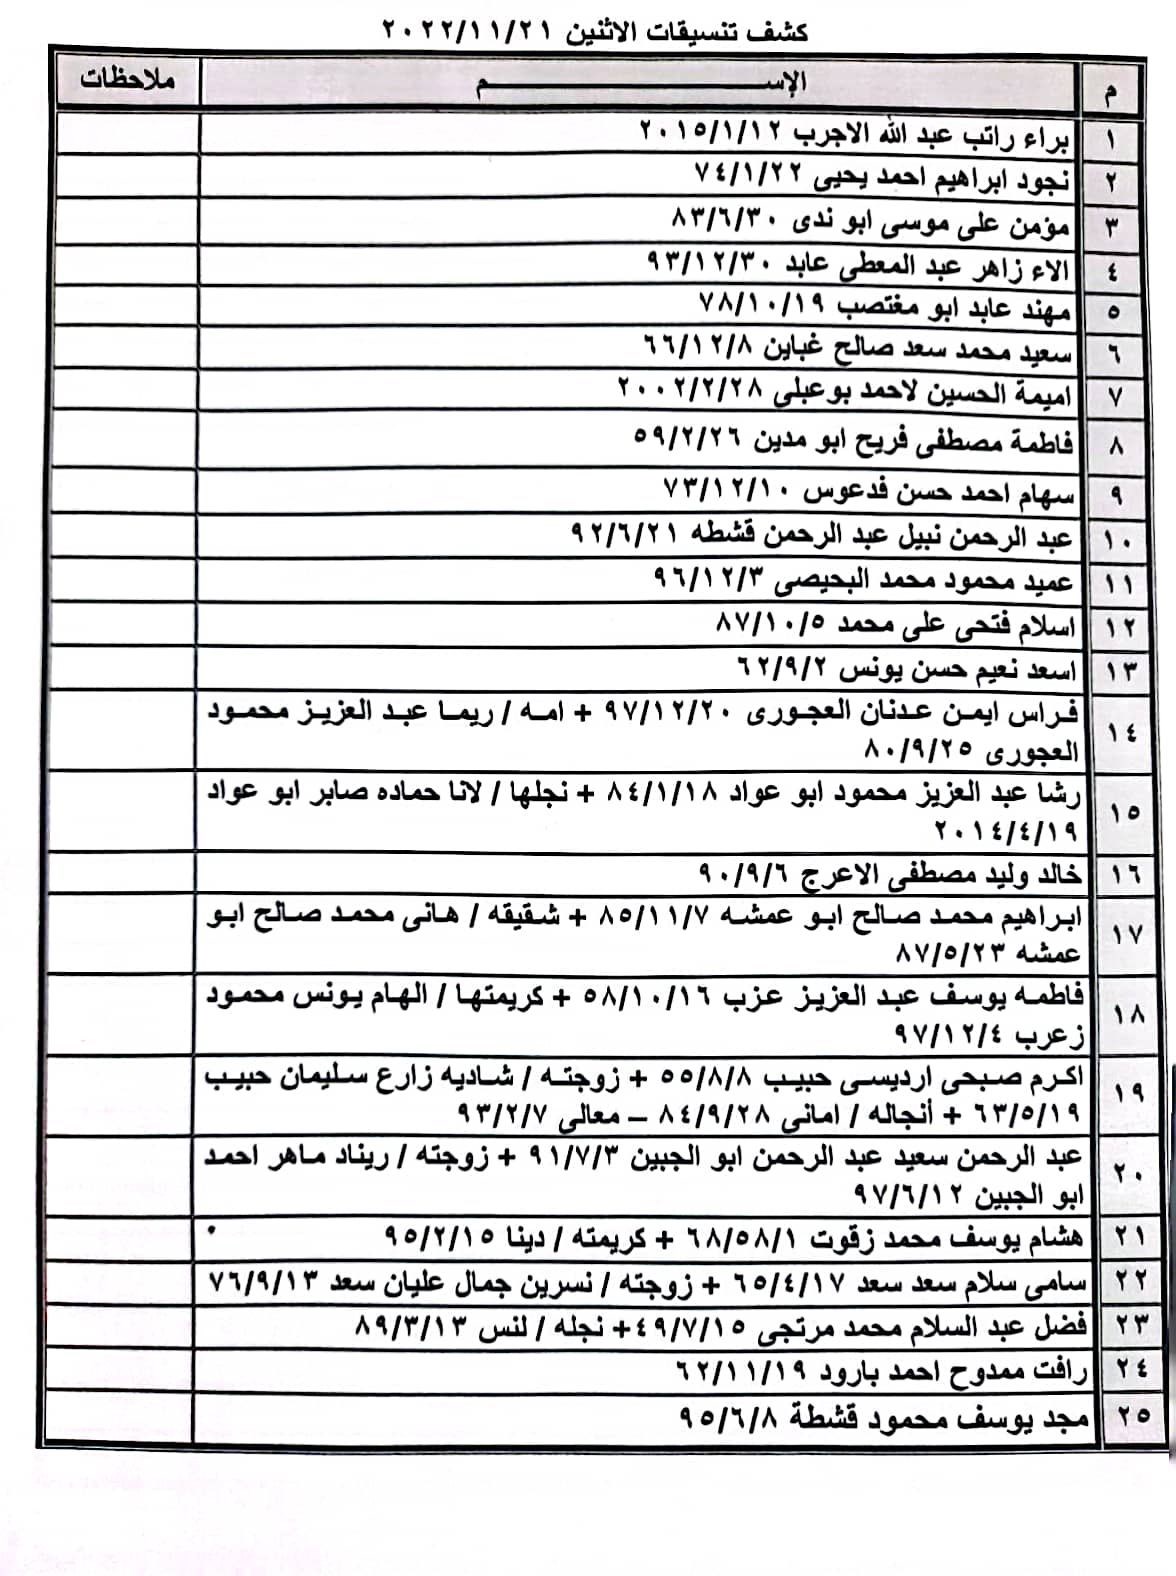 كشف تنسيقات الاثنين ٢٠٢٢/١١/٢١
م الإســـــــــــــــــم ملاحظات
١ براء راتب عبد الله الاجرب ٢٠١٥/١/١٢
٢ نجود ابراهيم احمد يحيى ٧٤/١/٢٢
٣ مؤمن على موسى ابو ندى ٨٣/٦/٣٠
٤ الاء زاهر عبد المعطى عابد ٩٣/١٢/٣٠
٥ مهند عابد ابو مغتصب ٧٨/١٠/١٩
٦ سعيد محمد سعد صالح غباين ٦٦/١٢/٨
٧ اميمة الحسين لاحمد بوعبلى ٢٠٠٢/٢/٢٨
٨ فاطمة مصطفى فريح ابو مدين ٥٩/٢/٢٦
٩ سهام احمد حسن فدعوس ٧٣/١٢/١٠
١٠ عبد الرحمن نبيل عبد الرحمن قشطه ٩٢/٦/٢١
١١ عميد محمود محمد البحيصى ٩٦/١٢/٣
١٢ اسلام فتحى على محمد ٨٧/١٠/٥
١٣ اسعد نعيم حسن يونس ٦٢/٩/٢
١٤ فراس ايمن عدنان العجورى ٩٧/١٢/٢٠ + امه / ريما عبد العزيز محمود
العجورى ٨٠/٩/٢٥
١٥ رشا عبد العزيز محمود ابو عواد ٨٤/١/١٨ + نجلها / لانا حماده صابر ابو عواد
٢٠١٤/٤/١٩
١٦ خالد وليد مصطفى الاعرج ٩٠/٩/٦
١٧ ابراهيم محمد صالح ابو عمشه ٨٥/١١/٧ + شقيقه / هانى محمد صالح ابو
عمشه ٨٧/٥/٢٣
١٨ فاطمه يوسف عبد العزيز عزب ٥٨/١٠/١٦ + كريمتها / الهام يونس محمود
زعرب ٩٧/١٢/٤
١٩ اكرم صبحى ارديسى حبيب ٥٥/٨/٨ + زوجته / شاديه زارع سليمان حبيب
٦٣/٥/١٩ + أنجاله / امانى ٨٤/٩/٢٨ – معالى ٩٣/٢/٧
٢٠ عبد الرحمن سعيد عبد الرحمن ابو الجبين ٩١/٧/٣ + زوجته / ريناد ماهر احمد
ابو الجبين ٩٧/٦/١٢
٢١ هشام يوسف محمد زقوت ٦٨/٥٨/١ + كريمته / دينا ٩٥/٢/١٥
٢٢ سامى سلام سعد سعد ٦٥/٤/١٧ + زوجته / نسرين جمال عليان سعد ٧٦/٩/١٣
٢٣ فضل عبد السلام محمد مرتجى ٤٩/٧/١٥+ نجله / لنس ٨٩/٣/١٣
٢٤ رافت ممدوح احمد بارود ٦٢/١١/١٩
٢٥ مجد يوسف محمود قشطة ٩٥/٦/٨